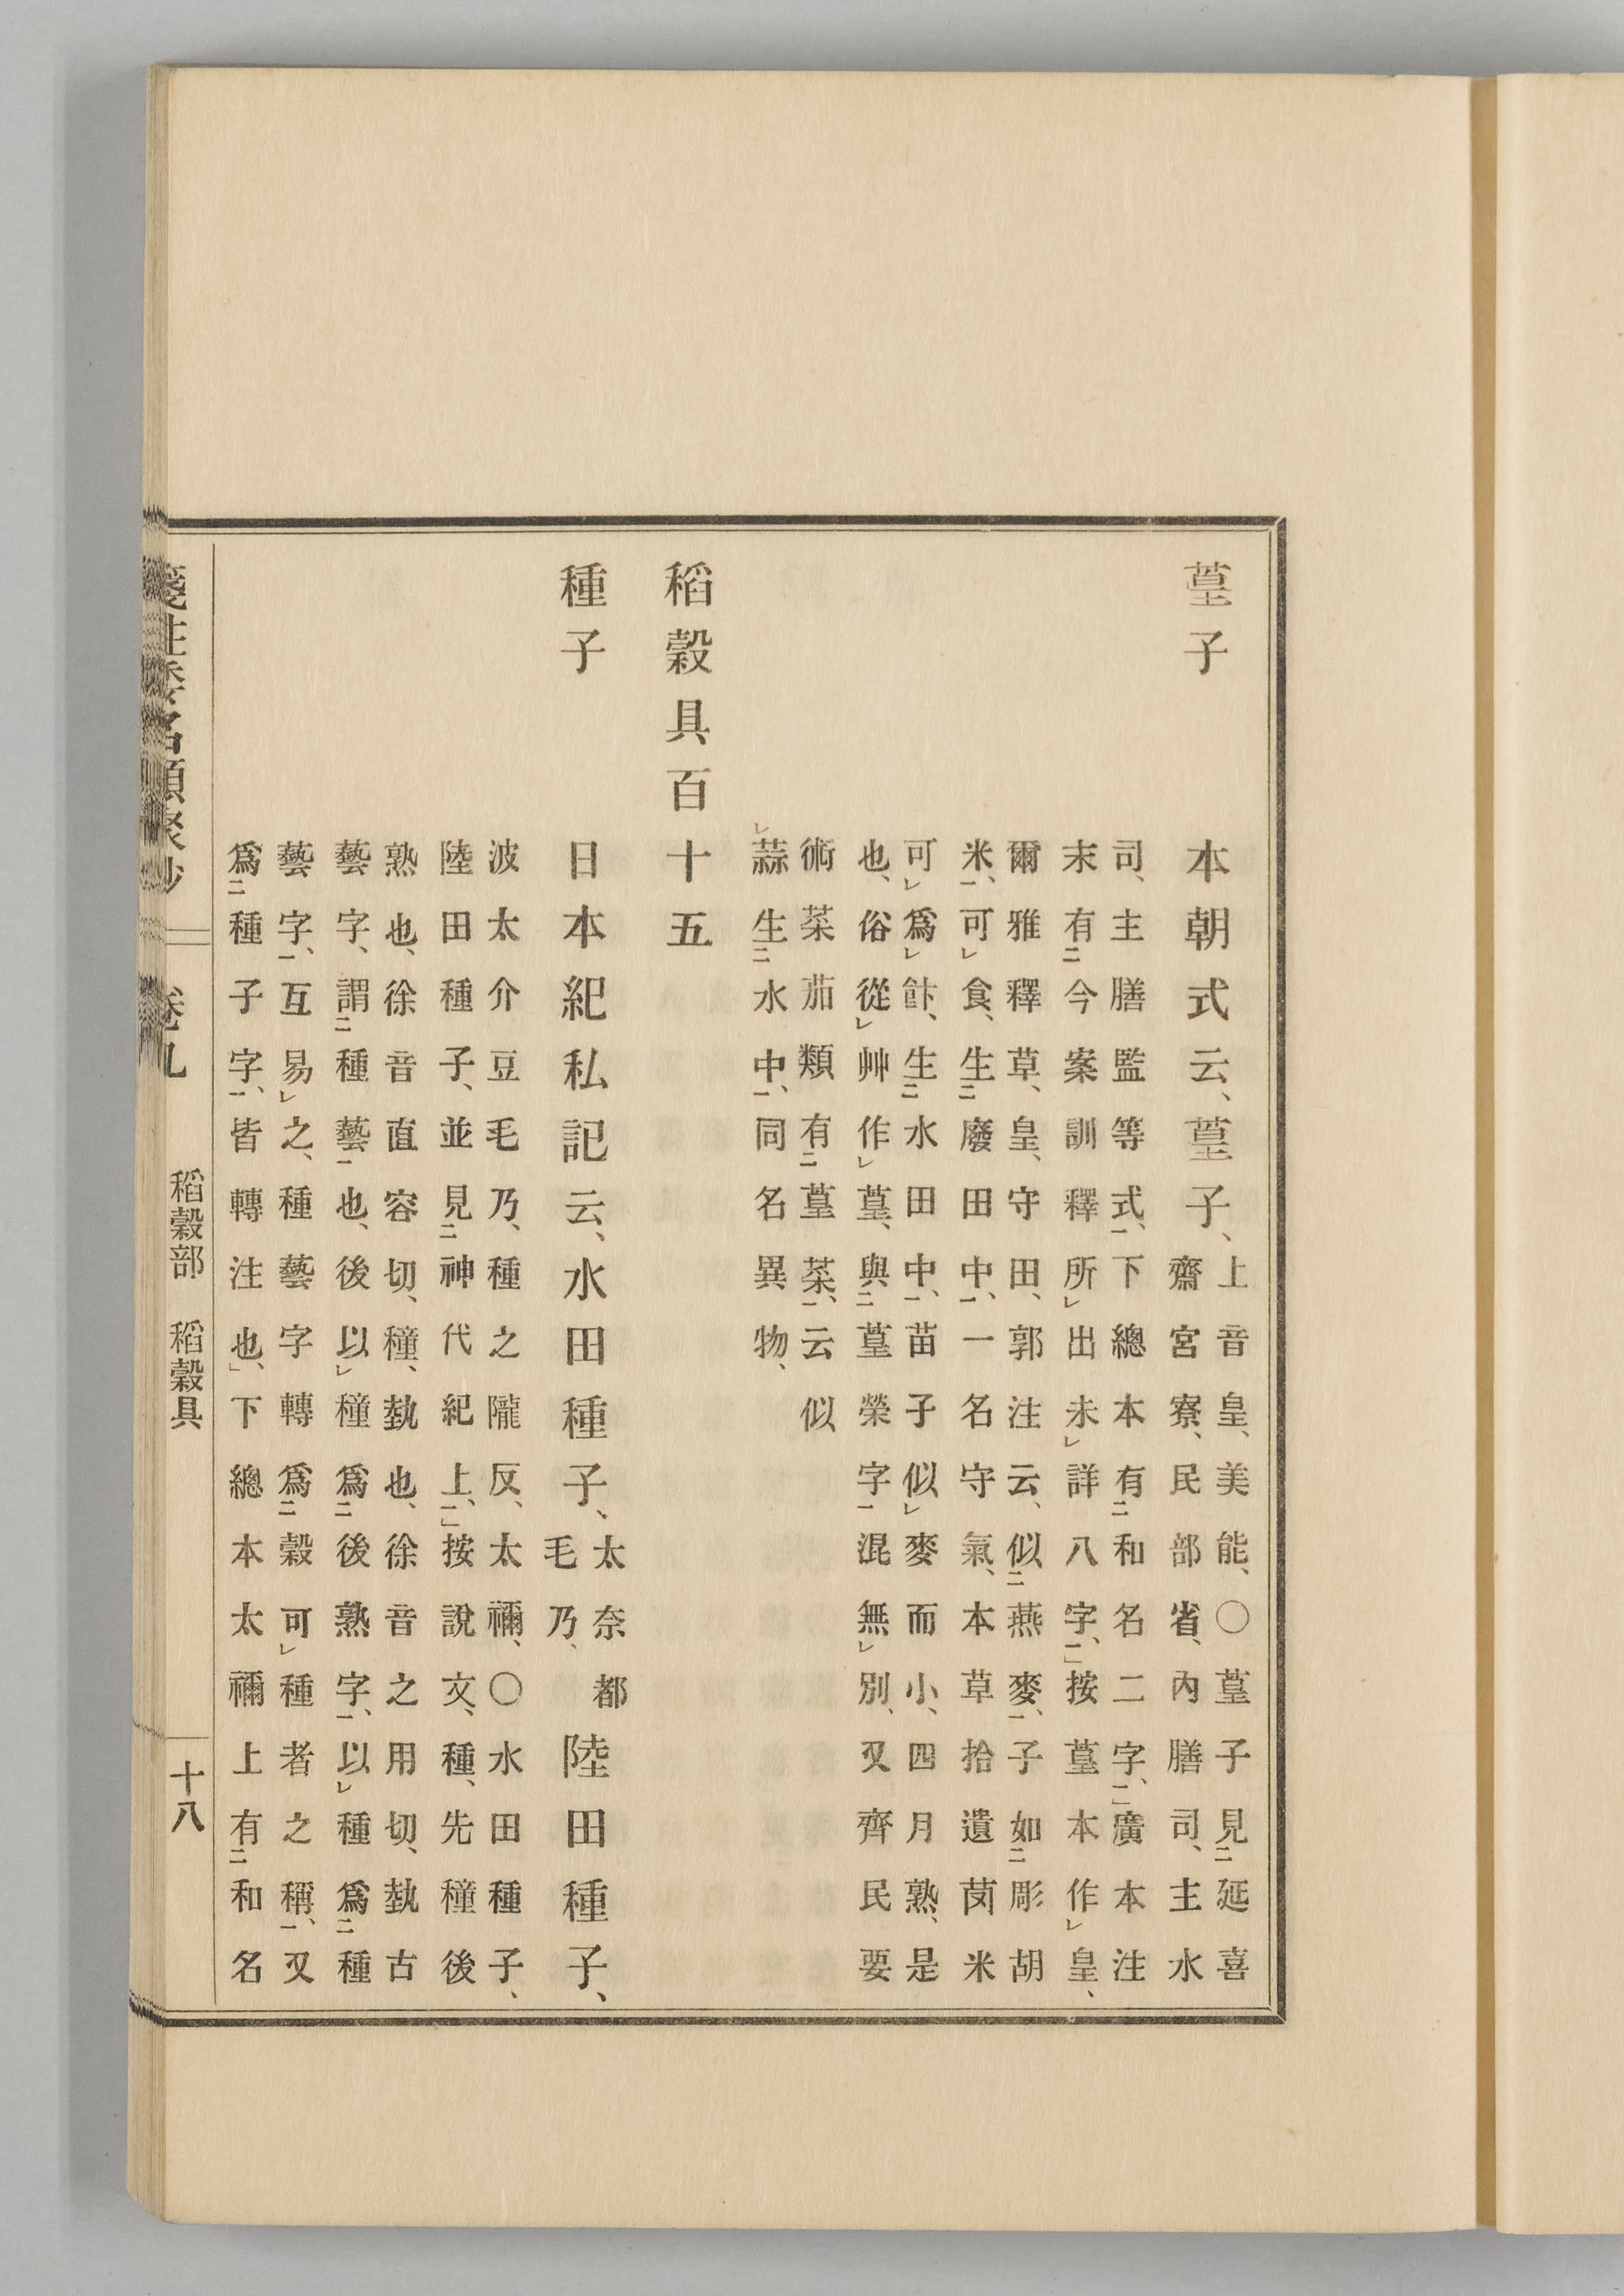 葟子
本朝式云、葟子、
上音皇、美能、○葟子見延喜
齋宮寮、民部省、內膳司、主水
司、主膳監等式、下總本有和名二字、」廣本注
末有今案訓釋所出未詳八字、」按葟本作皇、
爾雅釋草、皇、守田、郭注云、似燕麥、子如彫胡
米、可食、生廢田中、一名守氣、本草拾遺䒦米
可爲飰、生水田中、苗子似麥而小、四月熟、是
也、俗從艸作葟、與葟榮字混無別、又齊民要
術菜茄類有葟菜、云似
蒜生水中、同名異物、
稻穀具百十五
種子
日本紀私記云、水田種子、
太奈都
毛乃、
陸田種子、
波太介豆毛乃、種之隴反、太禰、○水田種子、
陸田種子、並見神代紀上、」按說文、種、先穜後
熟也、徐音直容切、穜、埶也、徐音之用切、埶古
藝字、謂種藝也、後以穜爲後熟字、以種爲種
藝字、互易之、種藝字轉爲穀可種者之稱、又
爲種子字、皆轉注也、」下總本太禰上有和名
箋注倭名類聚抄 卷九 稻穀部 稻穀具 十八